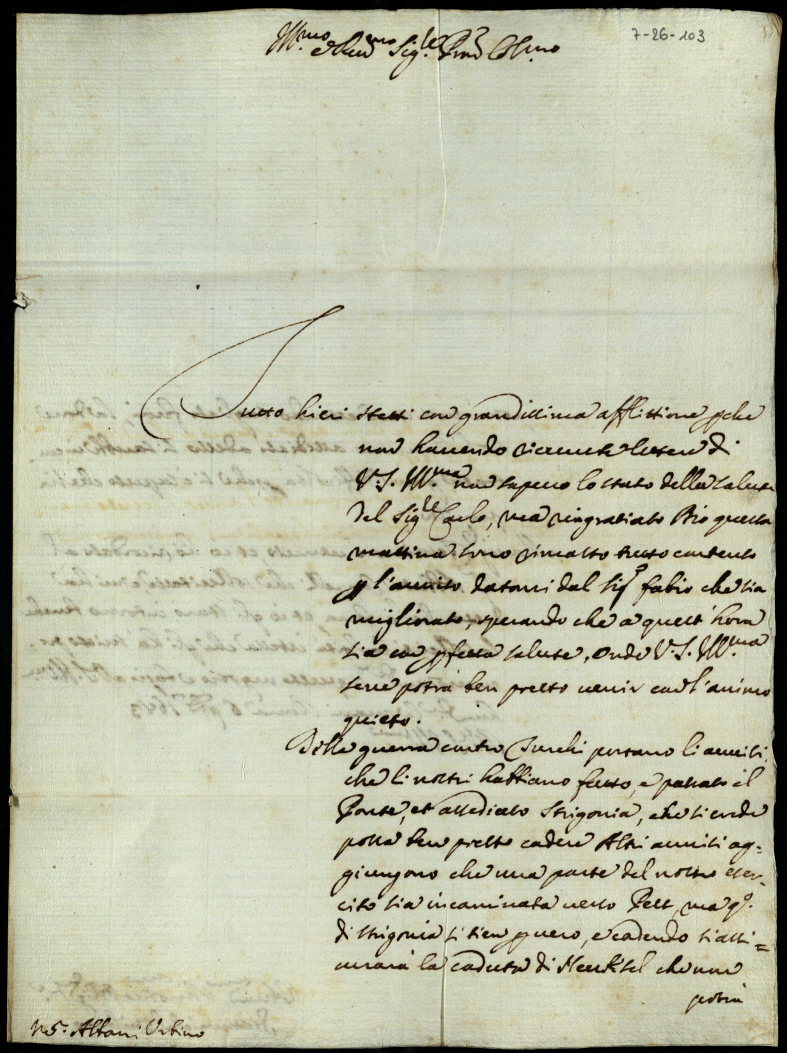 7-26-103
Ill.mo
e Rev.mo Sig.re Pron Col.mo
Tutto hieri stetti con grandissima afflittione pche
non havendo ricevute lettere di
V.S. Ill.ma non sapevo lo stato della salute
del Sig.re Carlo, ma ringratiato Dio questa
mattina sono rimasto tutto contento
p l'avviso datomi dal Sig.r fabio che sia
migliorato, sperando che a quest'hora
sia con pfetta salute, onde V.S. Ill.ma
se ne potrà ben presto venir con l'animo
quieto.
Della guerra contro Turchi portano li avvisi,
che li nostri habbiano fatto, e passato il
Ponte, et assediato Strigonia, che si crede
possa ben presto cadere Altri avvisi ag=
giungono che una parte del nostro eser=
cito sia incaminata verso Pest, ma q.o
di Strigonia si tien p vero, e cadendo s'assi=
curarà la caduta di Neuksel che non
potrà
Albani Urbino